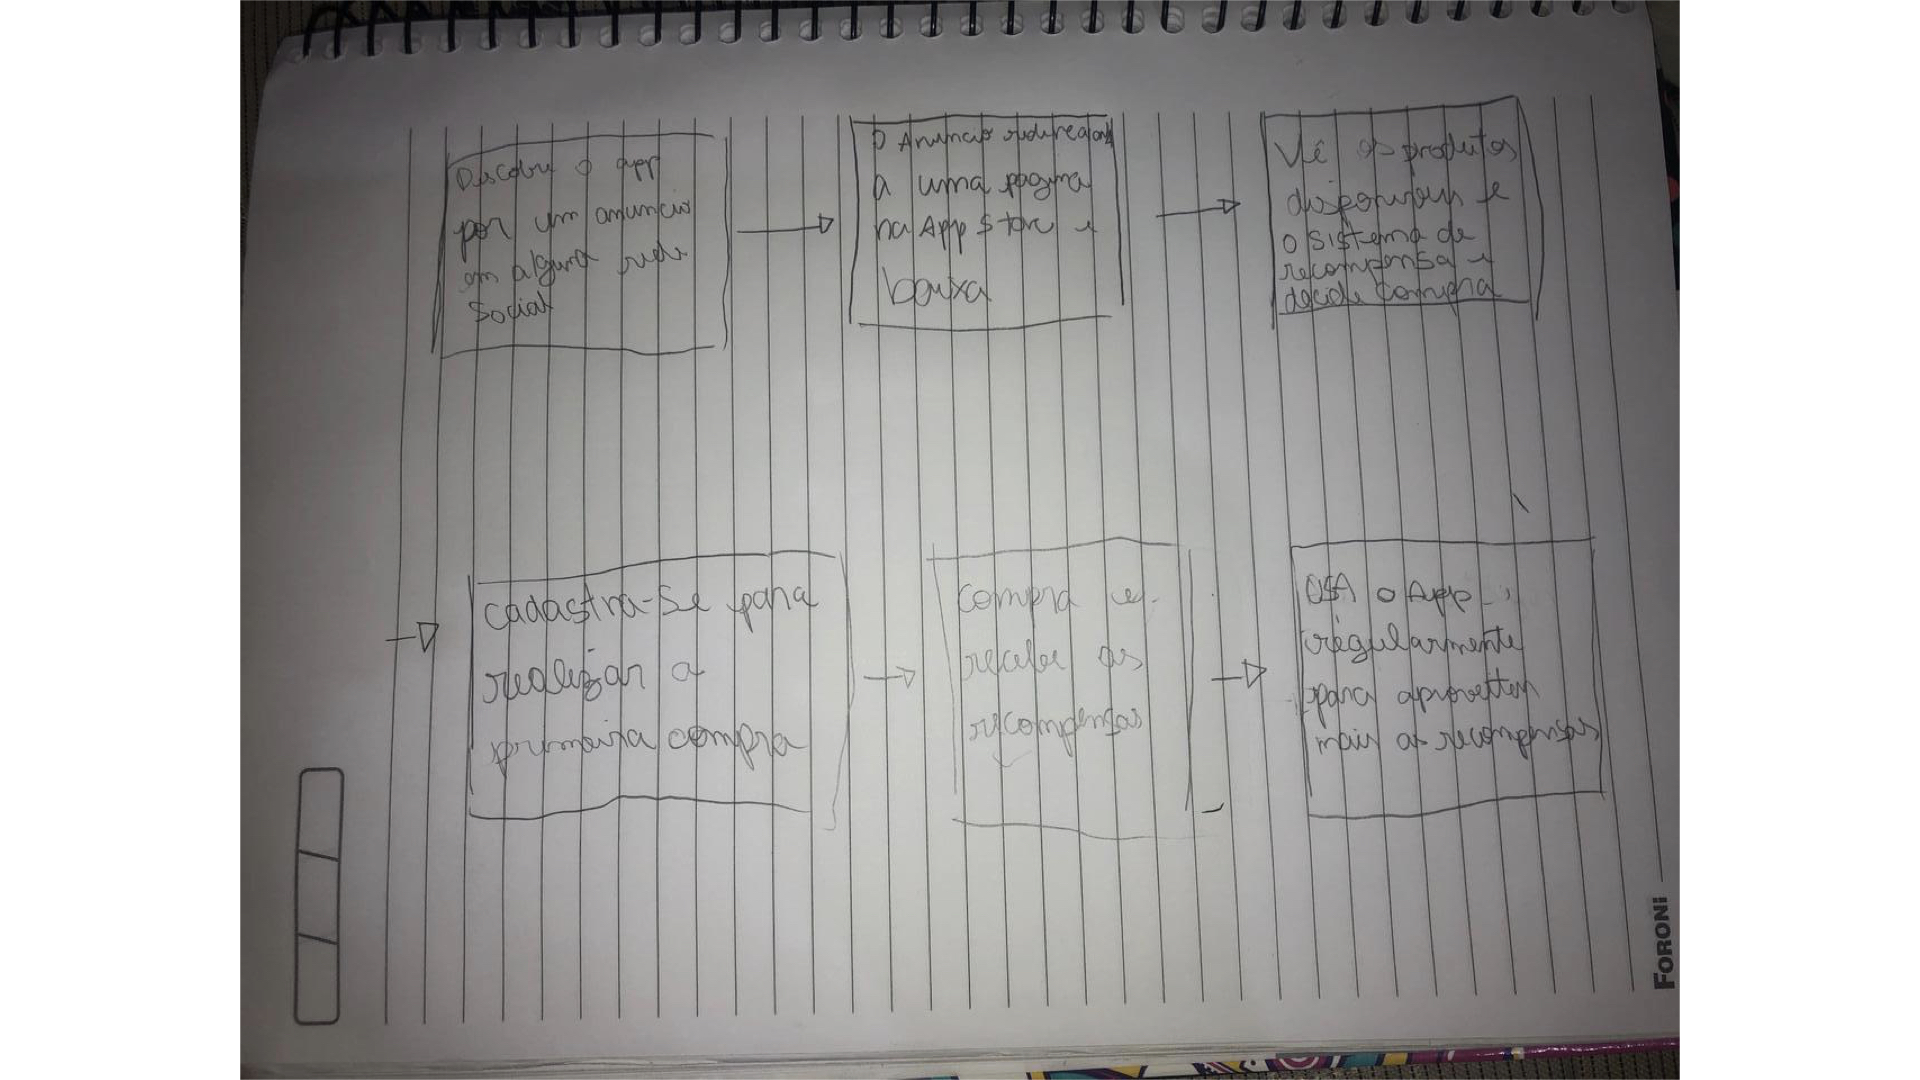 Discobre o app
por um anuncio
em alguma rede
social
O Anuncio redireciona
a uma pagina
na App Store e
baixa
Vê os produtos
disponiveis e
o sistema de
recompensa e
decide compra
cadastra-se para
realizar a
primeira compra
compra e
recebe as
recompensas
USA o App
regularmente
para aproveitar
mais as recompensas
FORONi